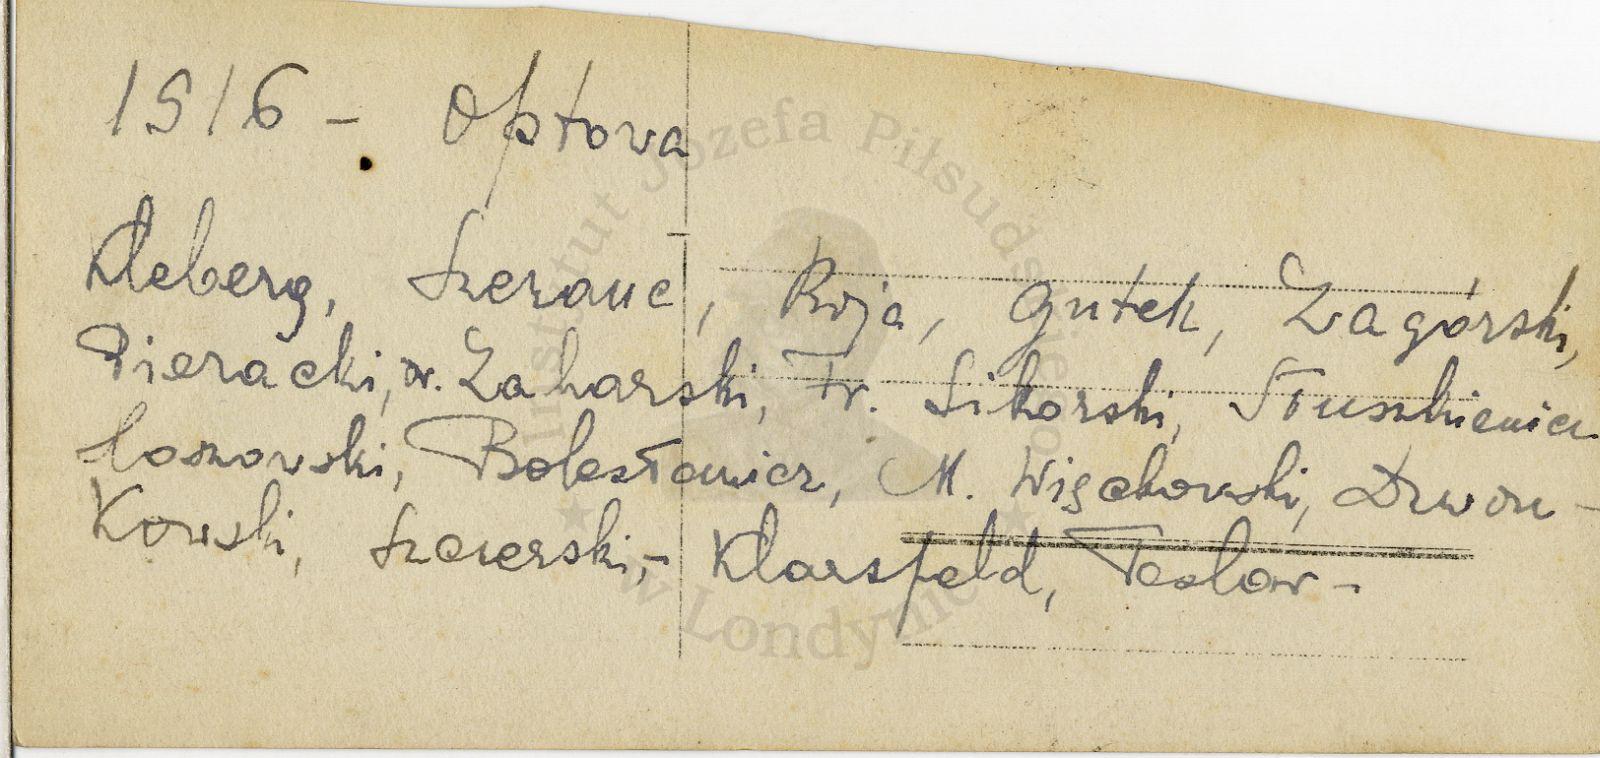 1916 - Optova
Kleberg, Szerauc, Roja, Gutek, Zagórski,
Pieracki, Dr. Zaharski, Fr. Sikorski, Słuszkiewicz
Bolesławicz, M. Więckowski, Dzwon-
Kowski, Klarsfeld,
Instytut Józefa Piłsudskiego
w Londynie